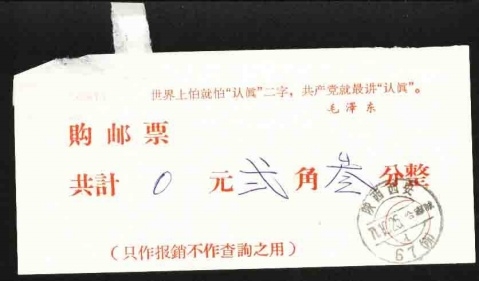 世界上怕就怕“认真”二字，共产党就最讲“认真”。
毛澤东
購邮票
共計 0 元 弍 角 叁 分整
陕西西安
(只作报銷不作查詢之用)